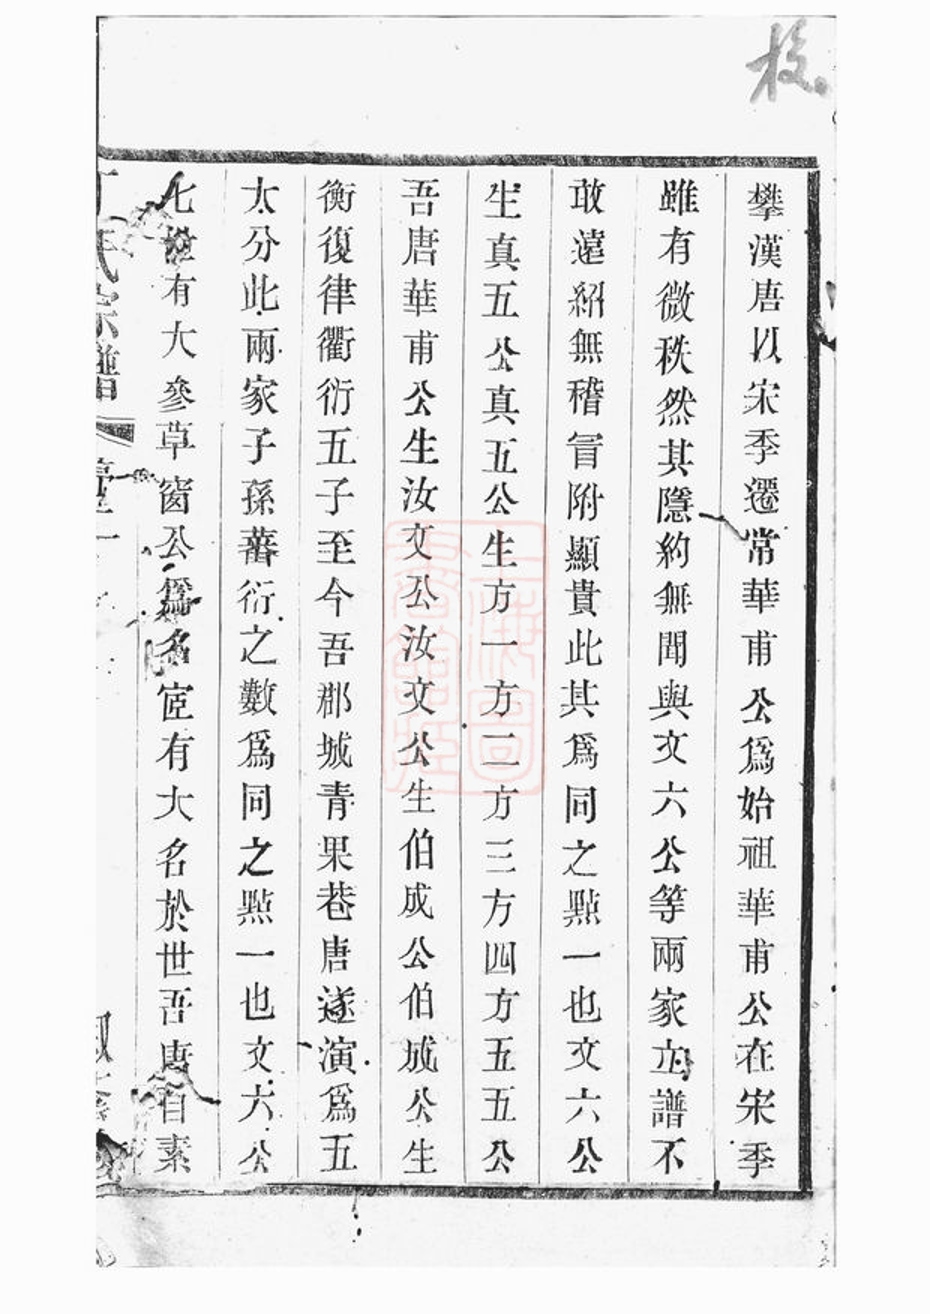 校
攀漢唐以宋季遷常華甫公爲始祖華甫公在宋季
雖有微秩然其隱約無聞與文六公等兩家立譜不
敢遠紹無稽冒附顯貴此其爲同之㸃一也文六公
生真五公真五公生方一方二方三方四方五五公
吾唐華甫公生汝文公汝文公生伯成公伯成公生
衡復律衢衍五子至今吾郡城青果巷唐遂演爲五
太分此兩家子孫蕃衍之數爲同之㸃一也文六公
七世有大參草窗公爲名宦有大名於世吾唐自素
氏宗譜